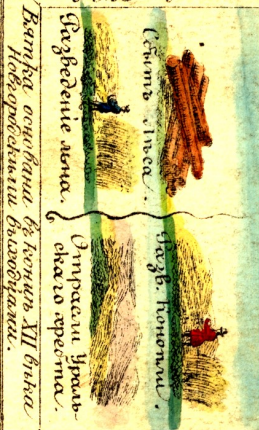 Сбытъ лѣса.
Разв. Конопли.
Разведеніе льна.
Отрасли Ураль-
скаго хребта.
Вятка основана въ концѣ XII вѣка
Новгородскими выходцами.